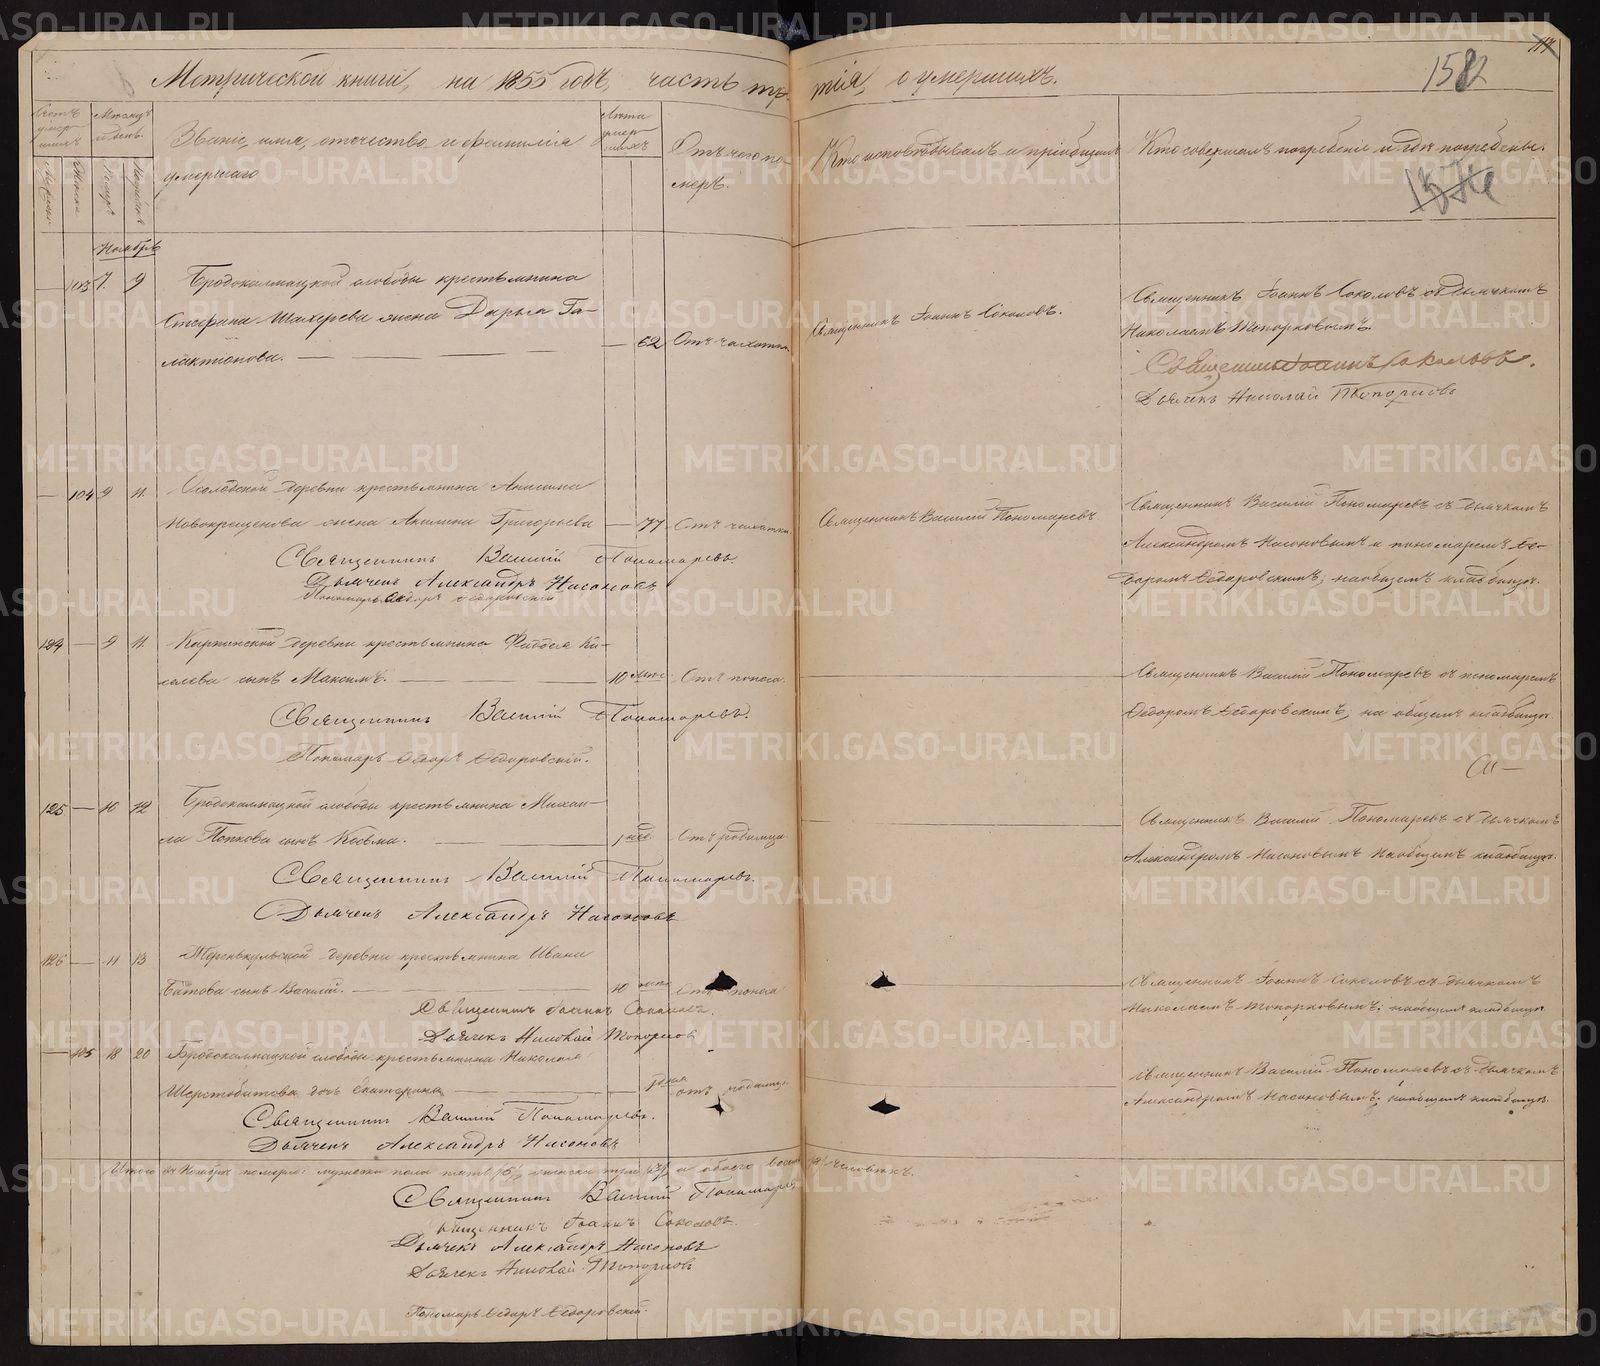 Метрической книги, на 1855 годъ, часть третія, о умершихъ.
1582
Счетъ умершихъ
Мѣсяцъ и день
Званіе, имя, отчество и фамилія умершаго
Лѣта умершихъ
Отъ чего померъ.
Кто исповѣдывалъ и пріобщалъ
Кто совершалъ погребеніе и гдѣ погребены.
Ноябрь
103 7 9 Бродокалмацкой слободы крестьянина
Стефана Шахерева жена Дарья Га-
лактіонова. 62 Отъ чахотки
Священникъ Іоаннъ Соколовъ.
Священникъ Іоаннъ Соколовъ съ дьячкомъ
Николаемъ Топорковымъ.
Священникъ Іоаннъ Соколовъ.
Дьячекъ Николай Топорковъ
104 9 11. деревни крестьянина
Новокрещенова жена Акилина Григорьева 77 Отъ чахотки
Священникъ Василій Пономаревъ
Священникъ Василій Пономаревъ съ дьячкомъ
Александромъ Насоновымъ и пономаремъ Ѳе-
доромъ Ѳедоровскимъ; на общемъ кладбищѣ.
Священникъ Василій Пономаревъ.
Дьячекъ Александръ Насоновъ
Пономарь Ѳедоръ Ѳедоровскій
124 9 11. Карпинской деревни крестьянина Фаддея Ки-
селева сынъ Максимъ. 10 Отъ поноса.
Священникъ Василій Пономаревъ съ пономаремъ
Ѳедоромъ Ѳедоровскимъ; на общемъ кладбищѣ.
Священникъ Василій Пономаревъ.
Пономарь Ѳедоръ Ѳедоровскій.
125 10 12 Бродокалмацкой слободы крестьянина Михаи-
ла Попкова сынъ Косьма. 1 нед. Отъ родимца
Священникъ Василій Пономаревъ съ дьячкомъ
Александромъ Насоновымъ на общемъ кладбищѣ.
Священникъ Василій Пономаревъ.
Дьячекъ Александръ Насоновъ
126 11 13 Теренкульской деревни крестьянина Ивана
Батова сынъ Василій. 10 Отъ поноса
Священникъ Іоаннъ Соколовъ съ дьячкомъ
Николаемъ Топорковымъ; на общемъ кладбищѣ
Священникъ Іоаннъ Соколовъ.
Дьячекъ Николай Топорковъ
105 18 20 Бродокалмацкой слободы крестьянина Николая
Шерстобитова дочь Екатерина 1 отъ родимца
Священникъ Василій Пономаревъ съ дьячкомъ
Александромъ Насоновымъ; на общемъ кладбищѣ.
Священникъ Василій Пономаревъ.
Дьячекъ Александръ Насоновъ
Итого въ Ноябрѣ померло: мужеска пола пять /5/, женска три /3/, а обоего восемь /8/ человѣкъ.
Священникъ Василій Пономаревъ
Священникъ Іоаннъ Соколовъ.
Дьячекъ Александръ Насоновъ
Дьячекъ Николай Топорковъ
Пономарь Ѳедоръ Ѳедоровскій.
METRIKI.GASO-URAL.RU